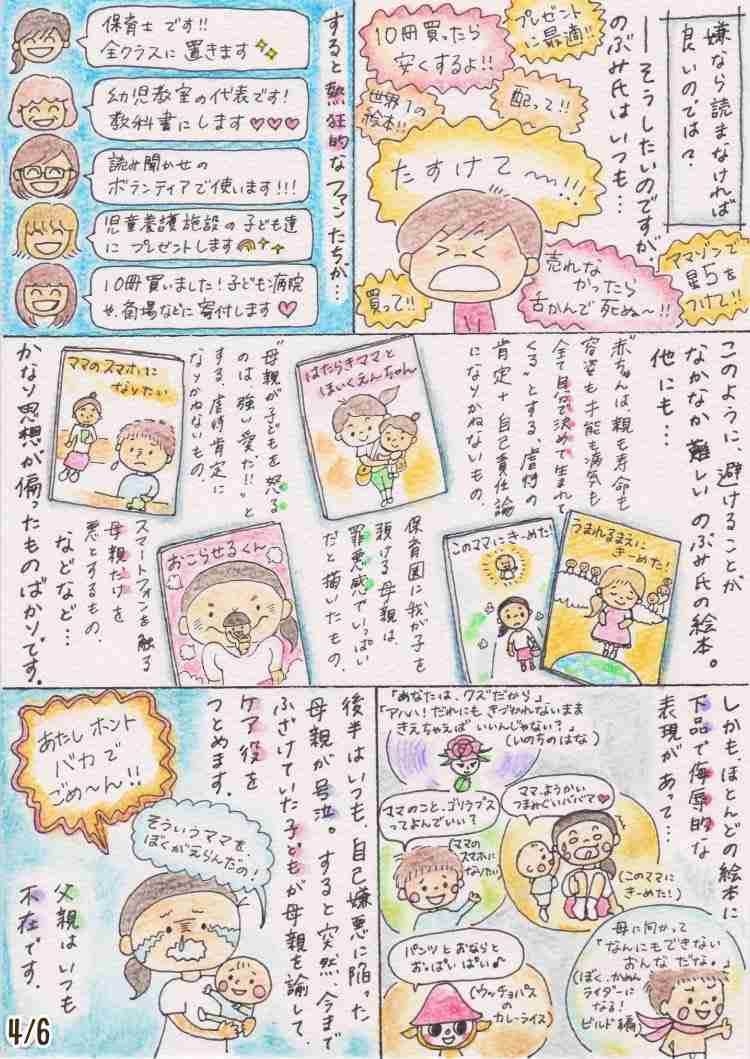 嫌なら読まなければ
良いのでは?
―そうしたいのですが、
のぶみ氏はいつも…
プレゼント
に最適!!
10冊買ったら
安くするよ!!
世界1の
絵本!!
配って!!
たすけて〜!!!
買って!!
売れな
かったら
舌かんで死ぬ〜!!
アマゾンで
星5を
つけて!!
すると熱狂的なファンたちが…
保育士です!!
全クラスに置きます
幼児教室の代表です!
教科書にします♡♡♡
読み聞かせの
ボランティアで使います!!!
児童養護施設の子ども達
にプレゼントします
10冊買いました!子ども病院
や、斎場などに寄付します♡
このように、避けることが
なかなか難しいのぶみ氏の絵本。
他にも…
赤ちゃんは親も寿命も
容姿も才能も病気も
全て自分で決めて生まれて
くる"とする、虐待の
肯定+自己責任論
になりかねないもの、
うまれるまえに
きーめた!
このママにきーめた!
はたらきママと
ほいくえんちゃん
保育園に我が子を
預ける母親は、
罪悪感でいっぱい
だと描いたもの、
"母親が子どもを怒る
のは、強い愛だ!!"と
する、虐待肯定に
なりかねないもの、
おこらせるくん
ママのスマホに
なりたい
スマートフォンを触る
母親だけを
悪とするもの、
などなど…
かなり思想が偏ったものばかりです。
しかも、ほとんどの絵本に
下品で侮辱的な
表現があって…
「あなたは、クズだから」
「アハハ!だれにもきづかれないまま
きえちゃえばいいんじゃない?」
(いのちのはな)
ママのこと、ゴリラブス
ってよんでいい?
(ママの
スマホに
なりたい)
ママ、ようかい
つまみぐいババア♡
(このママに
きーめた!)
パンツとおならと
おっぱいぱい♪
(ウッチョパスの
カレーライス)
母に向かって
「なんにもできない
おんなだな。」
(ぼく、かめん
ライダーに
なる!
ビルド編)
後半はいつも、自己嫌悪に陥った
母親が号泣。すると突然、今まで
ふざけていた子どもが母親を諭して、
ケア役を
つとめます。
あたしホント
バカで
ごめ〜ん!!
そういうママを
ぼくがえらんだの!
父親はいつも
不在です。
4/6